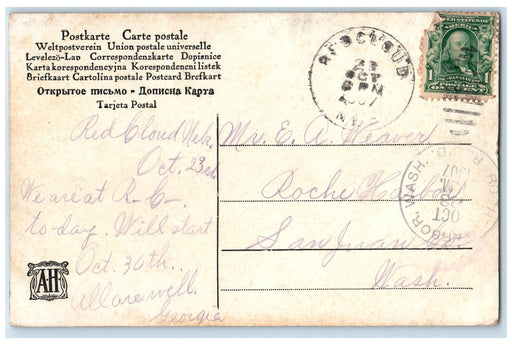 Postkarte Carte postale
Weltpostverein Union postale universelle
Levelező-Lap Correspondenzkarte Dopisnice
Karta korespondencyjna Korespondencni listek
Briefkaart Cartolina postale Postcard Brefkort
Открытое письмо - Дописна Карта
Tarjeta Postal
RED CLOUD
1907
1
POSTAGE
ONE CENT
Red Cloud Neb.
Oct. 23rd
We are at R- C-
to-day. Will start
Oct. 30th.
All are well.
Georgia
AH
Mr. E. A. Weaver
Roche Harbor
San Juan Co.
Wash.
HARBOR, WASH.
OCT